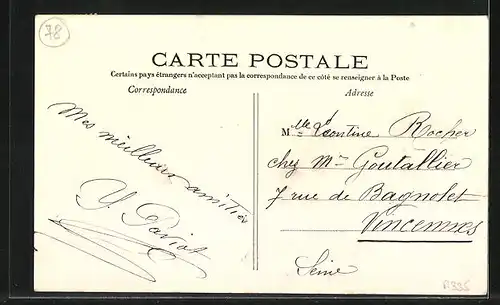 78
CARTE POSTALE
Certains pays étrangers n'acceptant pas la correspondance de ce côté se renseigner à la Poste
Correspondance
Adresse
Mes meilleures amitiés
Y. Pariot
Mlle Léontine Rocher
chez Mme Goutallier
7 rue de Bagnolet
Vincennes
Seine